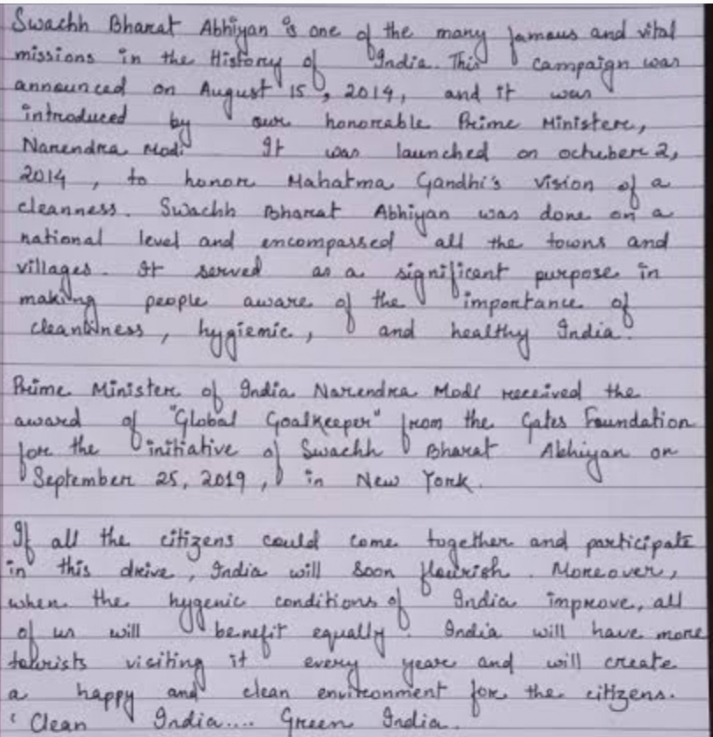 Swachh Bharat Abhiyan is one of the many famous and vital
missions in the History of India. This campaign was
announced on August 15, 2014, and it was
introduced by our honorable Prime Minister,
Narendra Modi It was launched on octuber 2,
2014, to honor Mahatma Gandhi's vision of a
cleanness. Swachh Bharat Abhiyan was done on a
national level and encompassed all the towns and
villages. It served as a significant purpose in
making people aware of the importance of
cleanliness, hygiemic, and healthy India.
Prime Minister of India Narendra Modi received the
award of "Global Goalkeeper" from the Gates Foundation
for the initiative of Swachh Bharat Abhiyan on
September 25, 2019, in New York.
If all the citizens could come together and participate
in this drive, India will soon flourish. Moreover,
when the hygenic conditions of India improve, all
of us will benefit equally. India will have more
tourists visiting it every year and will create
a happy and clean environment for the citizens.
' Clean India.... Green India.